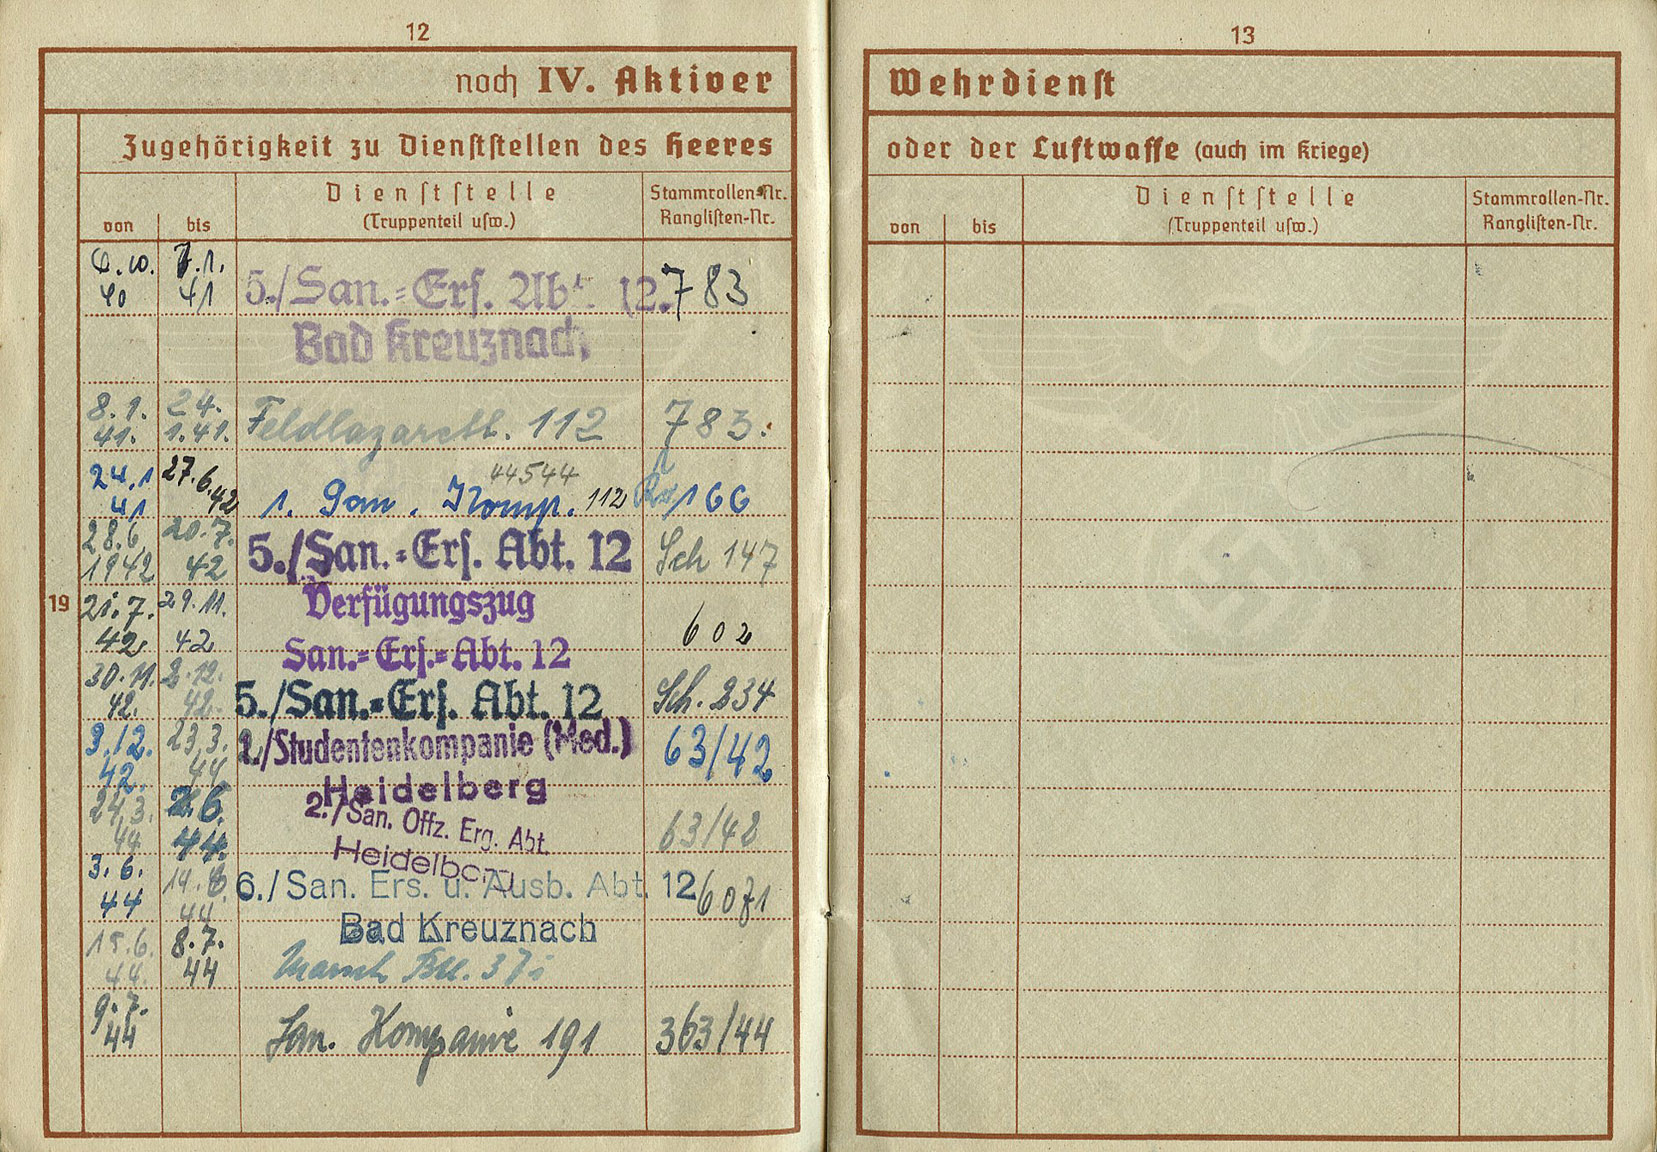 12
noch IV. Aktiver
Zugehörigkeit zu Dienststellen des Heeres
von bis Dienststelle (Truppenteil usw.) Stammrollen-Nr. Ranglisten-Nr.
7.1.
40 41 5./San.=Ers. Abt. 12. 783
Bad Kreuznach
8.1. 24.
41. 1.41. Feldlazarett. 112 783.
44544
24.1 27.6.42
41 1. San. Komp. 112 166
28.6. 20.7.
1942 42 5./San.=Ers. Abt. 12 Sch 147
19
21.7. 29.11. Verfügungszug
42. 42 San.=Ers.=Abt. 12 602
30.11. 8.12.
42. 42. 5./San.=Ers. Abt. 12 Sch. 234
9.12. 23.3. 2./Studentenkompanie (Med.) 63/42
42. 44 Heidelberg
24.3. 2.6. 2./San. Offz. Erg. Abt.
44 44. Heidelberg 63/42
3.6. 14.6.
44 44. 6./San. Ers. u. Ausb. Abt. 12 6071
Bad Kreuznach
15.6. 8.7.
44. 44 Marsch Btl.
9.7.
44 San. Kompanie 191 363/44
13
Wehrdienst
oder der Luftwaffe (auch im Kriege)
von bis Dienststelle (Truppenteil usw.) Stammrollen-Nr. Ranglisten-Nr.